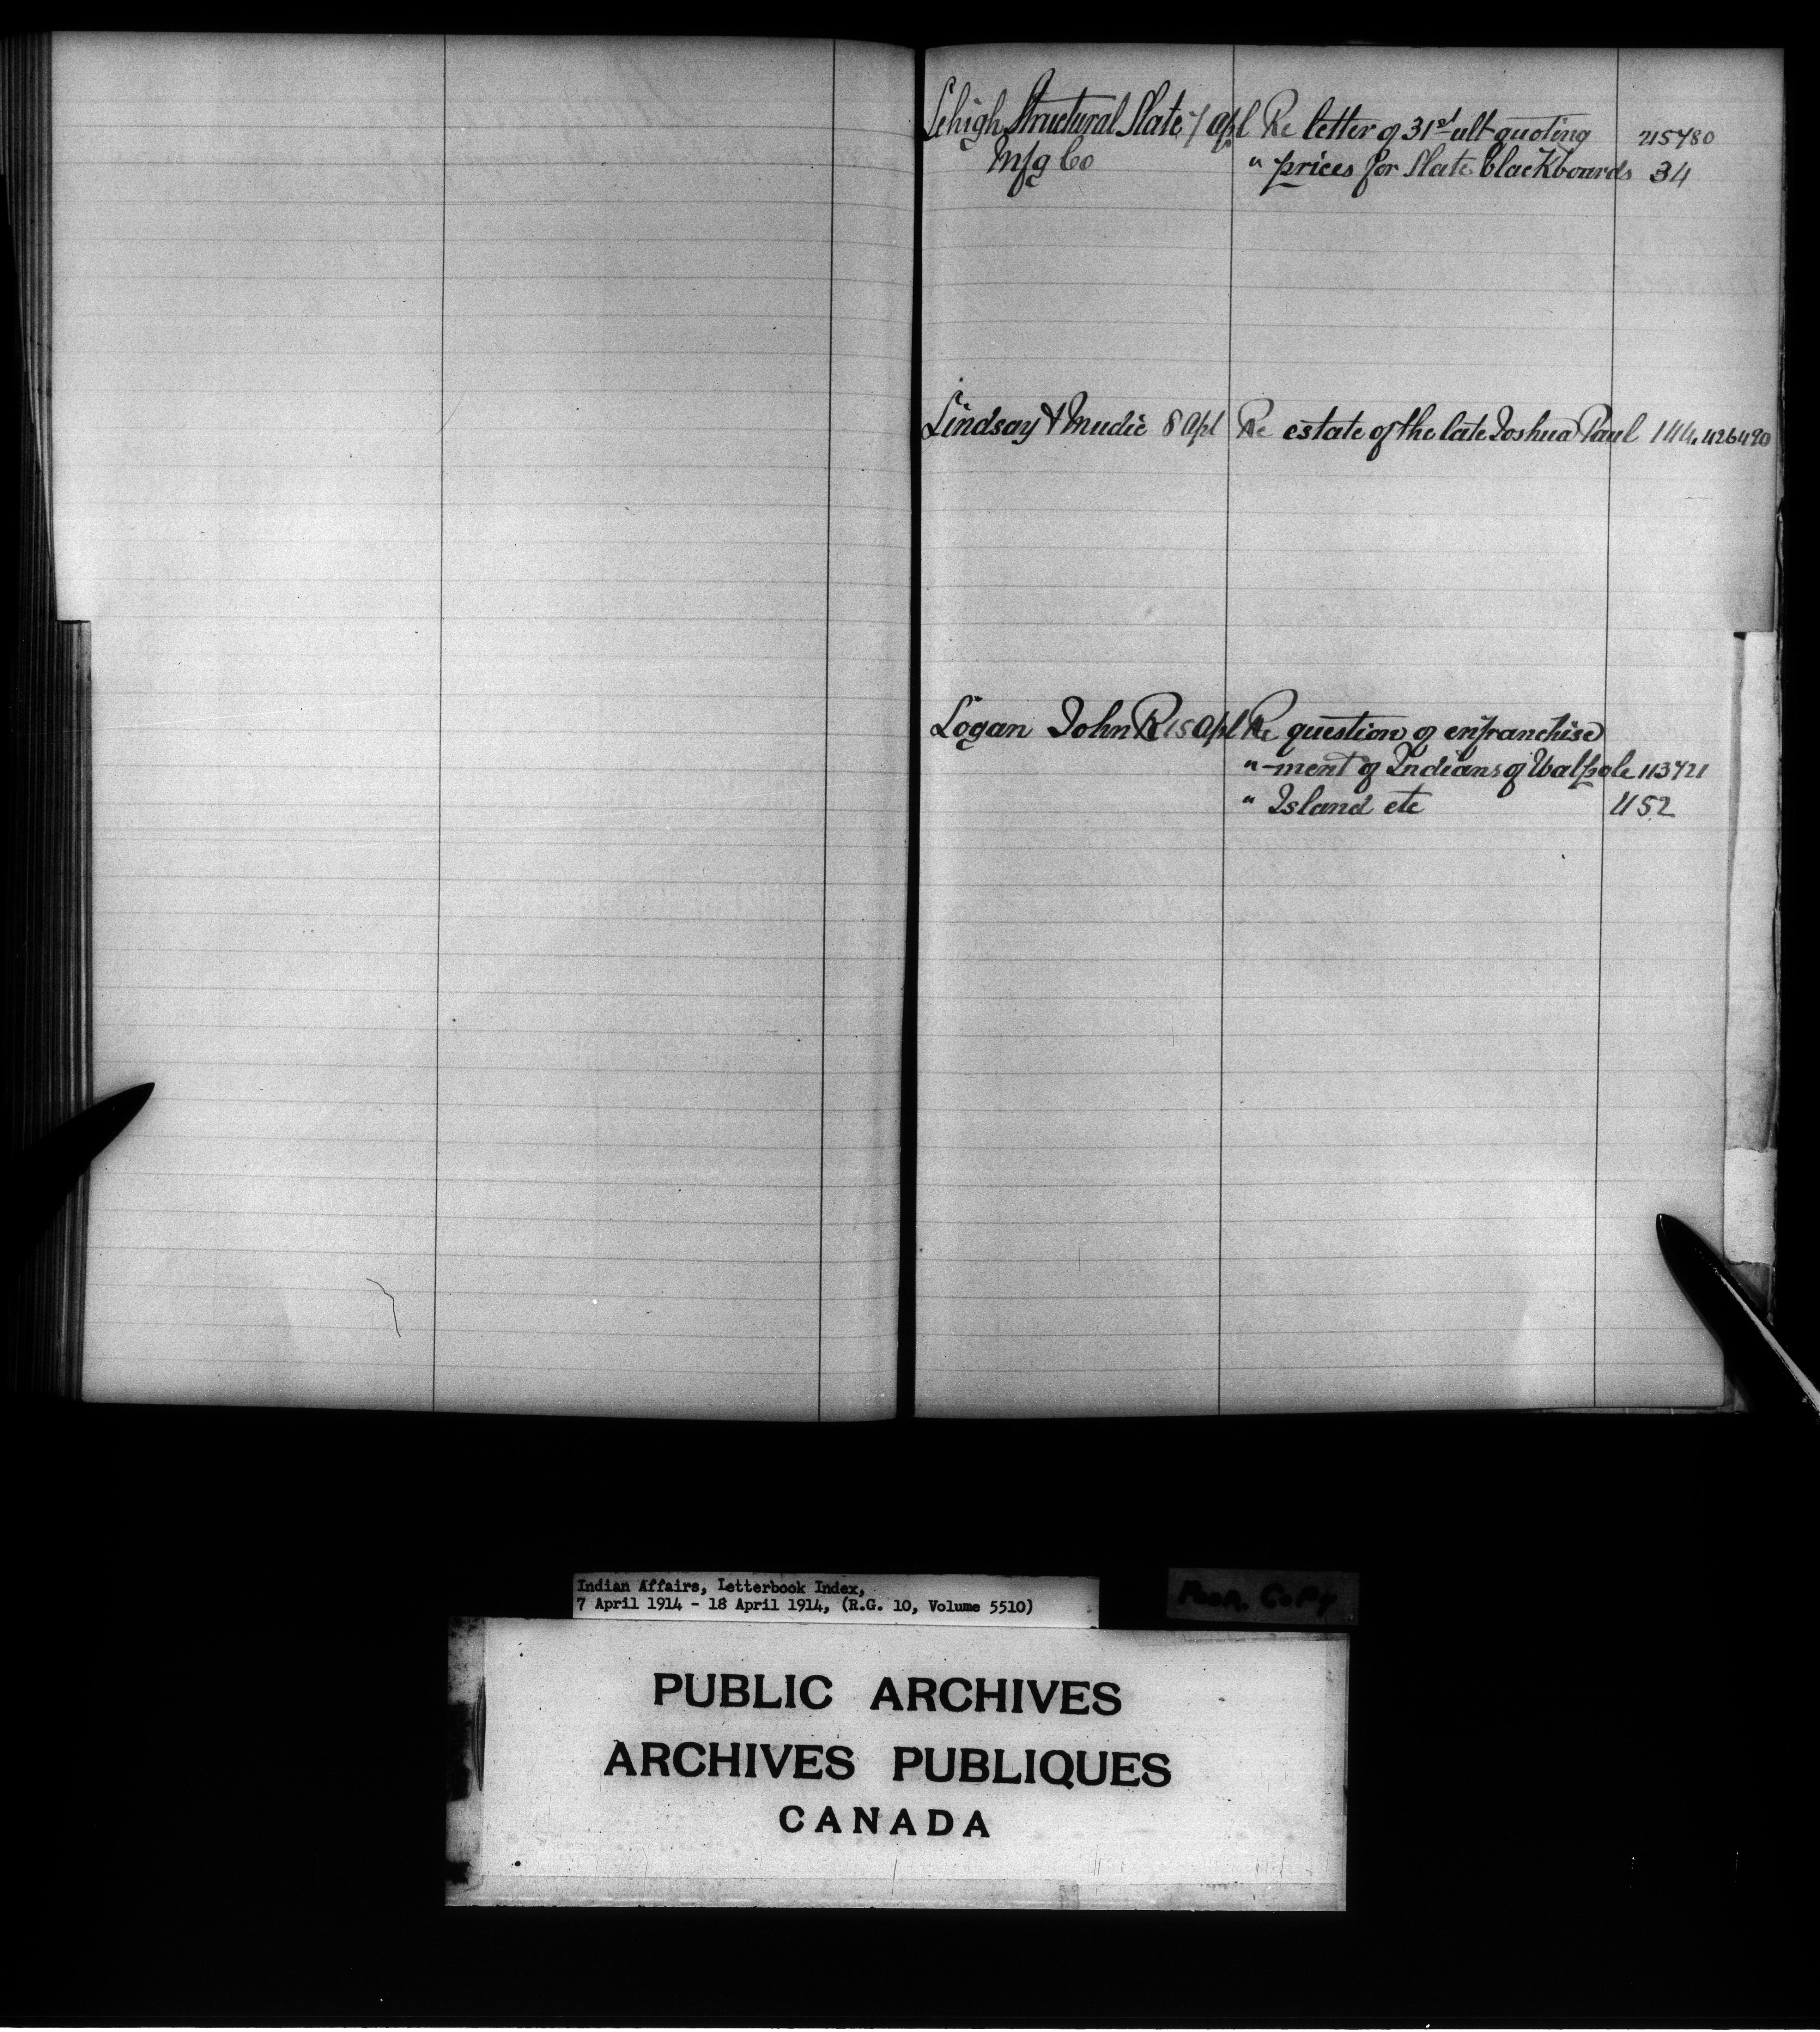 Lehigh Structural Slate 7 Apl Re letter of 31st ult quoting 215780
Mfg Co " prices for Slate blackboards 34
Lindsay & Mudie 8 Apl Re estate of the late Joshua Paul 144, 426490
Logan John R 15 Apl Re question of enfranchise
" -ment of Indians of Walpole 113721
" Island etc 452
Indian Affairs, Letterbook Index,
7 April 1914 - 18 April 1914, (R.G. 10, Volume 5510)
Poor. Copy
PUBLIC ARCHIVES
ARCHIVES PUBLIQUES
CANADA